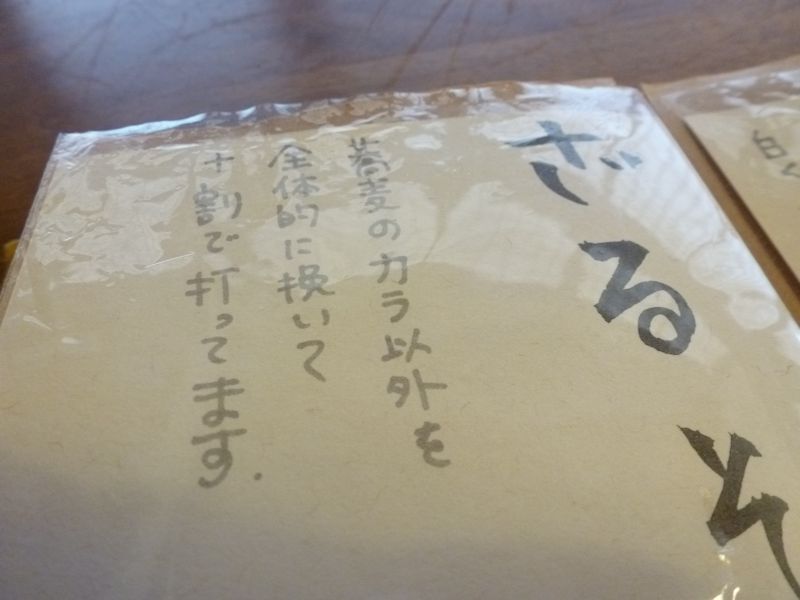 ざるそ
蕎麦のカラ以外を
全体的に挽いて
十割で打ってます.
白く